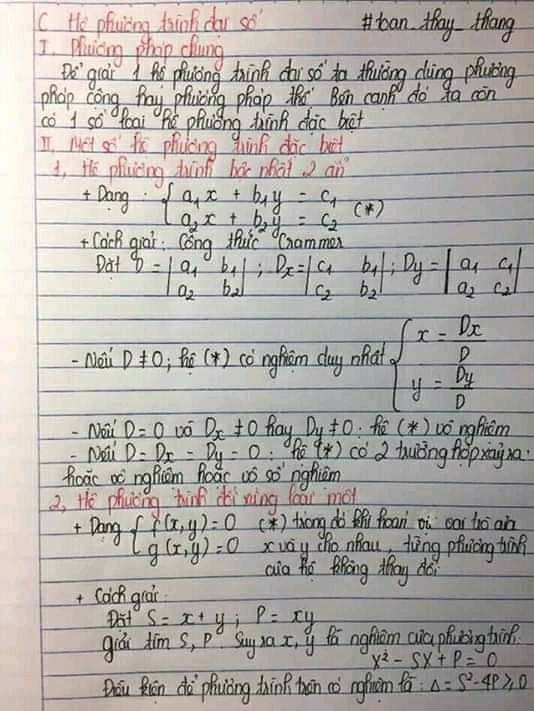 C Hệ phương trình đại số #toan_thay_thang
I. Phương pháp chung
Để giải 1 hệ phương trình đại số ta thường dùng phương
pháp cộng hay phương pháp thế. Bên cạnh đó ta còn
có 1 số loại hệ phương trình đặc biệt
II. Một số hệ phương trình đặc biệt
1, Hệ phương trình bậc nhất 2 ẩn
+ Dạng: { a₁x + b₁y = c₁
a₂x + b₂y = c₂ (*)
+ Cách giải: Công thức Crammer
Đặt D = | a₁ b₁ | ; Dx = | c₁ b₁ | ; Dy = | a₁ c₁ |
a₂ b₂ c₂ b₂ a₂ c₂
- Nếu D ≠ 0; hệ (*) có nghiệm duy nhất { x = Dx/D
y = Dy/D
- Nếu D = 0 và Dx ≠ 0 hay Dy ≠ 0: hệ (*) vô nghiệm
- Nếu D = Dx = Dy = 0: hệ (*) có 2 trường hợp xảy ra:
hoặc vô nghiệm hoặc vô số nghiệm
2, Hệ phương trình đối xứng loại một
+ Dạng { f(x,y) = 0 (*) trong đó khi hoán vị vai trò của
g(x,y) = 0 x và y cho nhau, từng phương trình
của hệ không thay đổi
+ Cách giải:
Đặt S = x + y; P = xy
giải tìm S, P. Suy ra x, y là nghiệm của phương trình:
X² - SX + P = 0
Điều kiện để phương trình trên có nghiệm là: Δ = S² - 4P ≥ 0